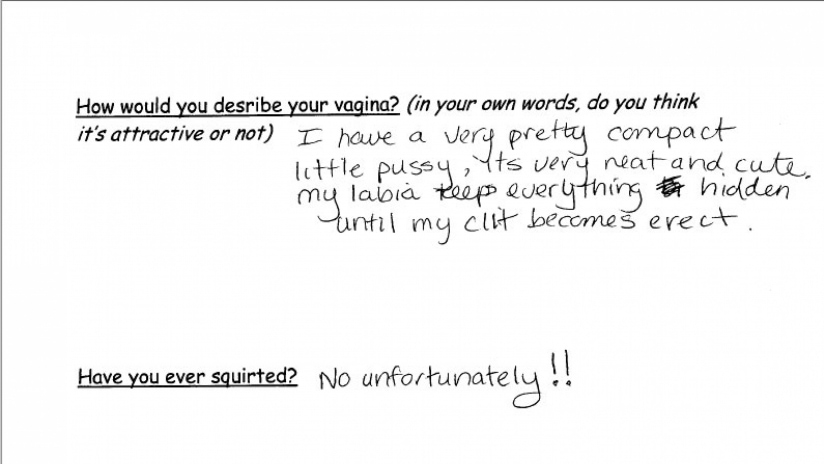 How would you desribe your vagina? (in your own words, do you think
it's attractive or not) I have a very pretty compact
little pussy, its very neat and cute.
my labia keeps everything hidden
until my clit becomes erect.
Have you ever squirted? No unfortunately!!